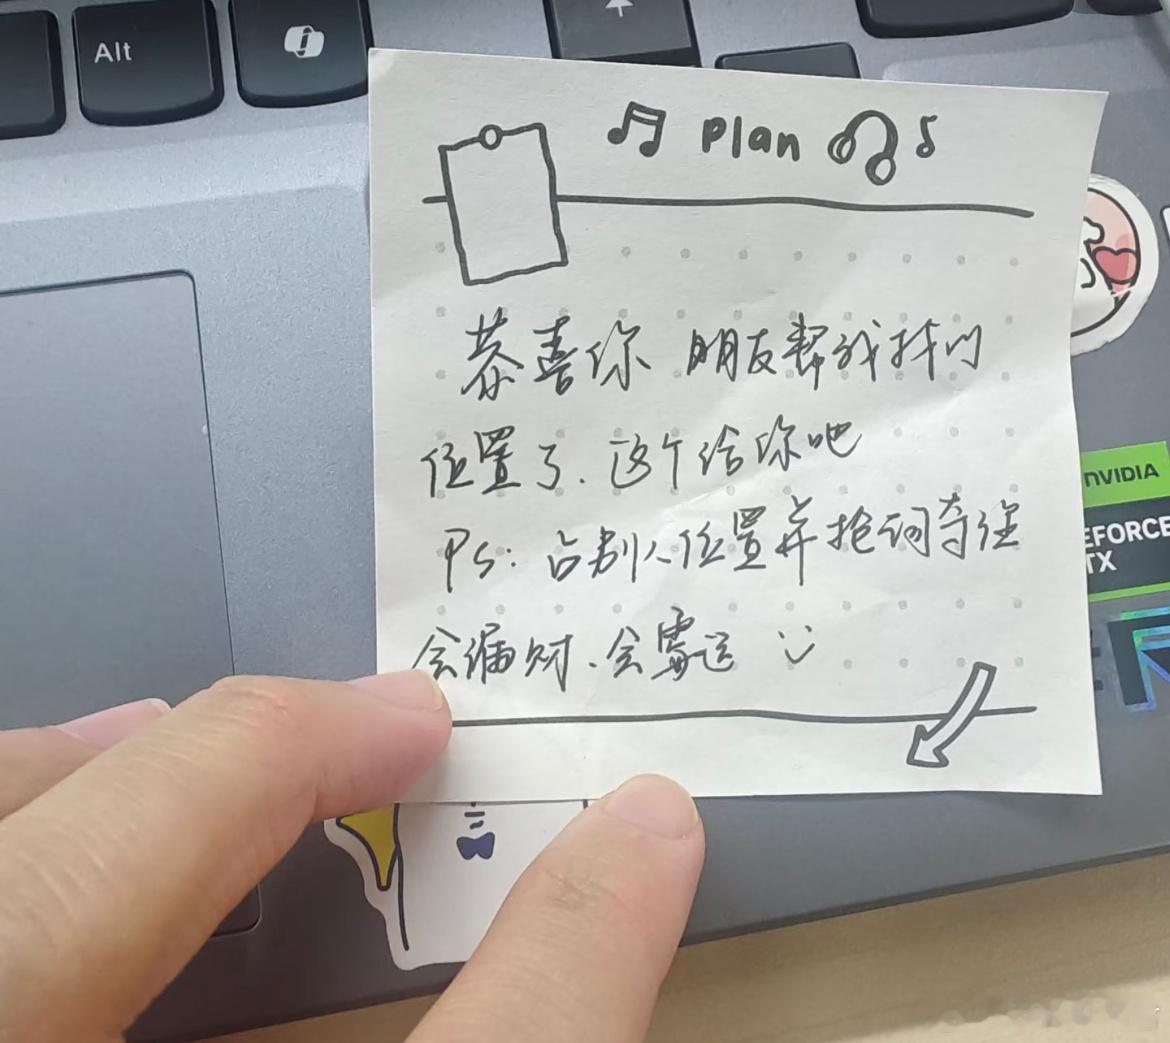 Alt
Plan
恭喜你 朋友帮我找到
位置了.这个给你吧
Ps: 占别人位置并抢词夺理
会漏财.会霉运
NVIDIA
EFORCE
TX